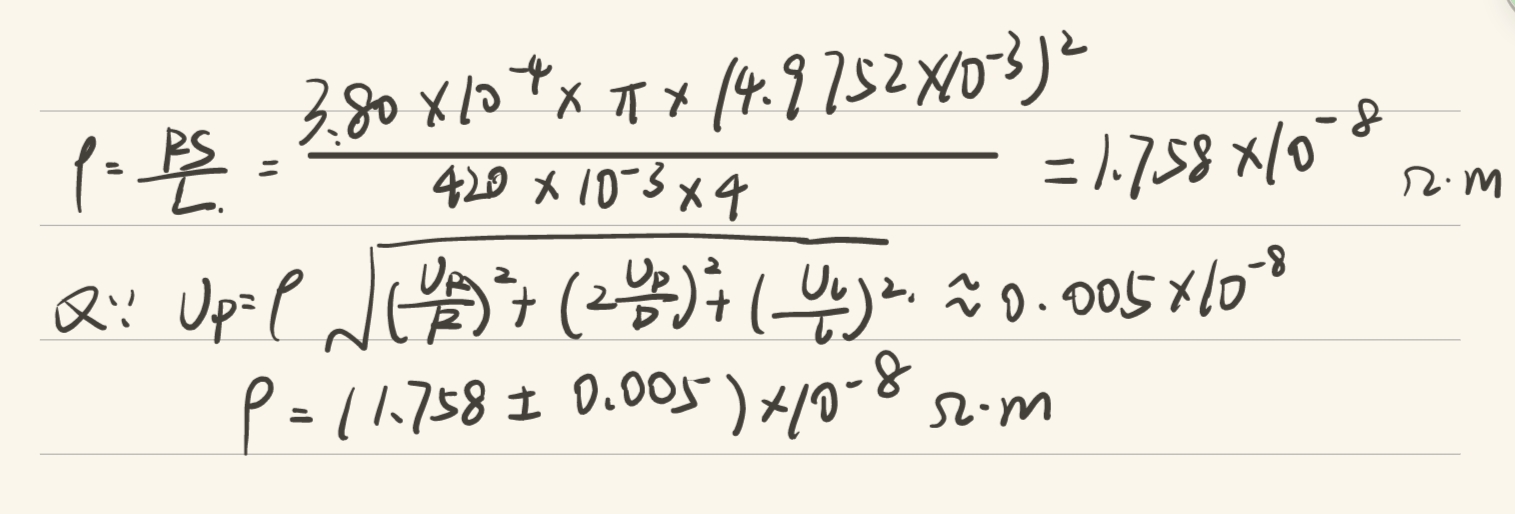 ρ = RS/L. = 3.80 ×10⁻⁴ × π × (4.9752×10⁻³)² / 420 × 10⁻³ × 4 = 1.758 ×10⁻⁸ Ω·m
Q∵ Uρ=ρ √(U_R/R)² + (2 U_D/D)² + (U_L/L)². ≈ 0.005 ×10⁻⁸
ρ = (1.758 ± 0.005) ×10⁻⁸ Ω·m